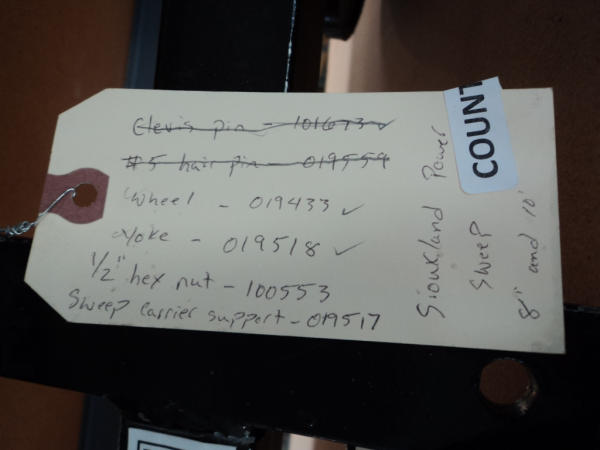 Clevis pin - 101673 ✓
#5 hair pin - 019559
Wheel - 019433 ✓
Yoke - 019518 ✓
1/2" hex nut - 100553
Sweep carrier support - 019517
Siouxland Power
Sweep
8' and 10'
COUNT